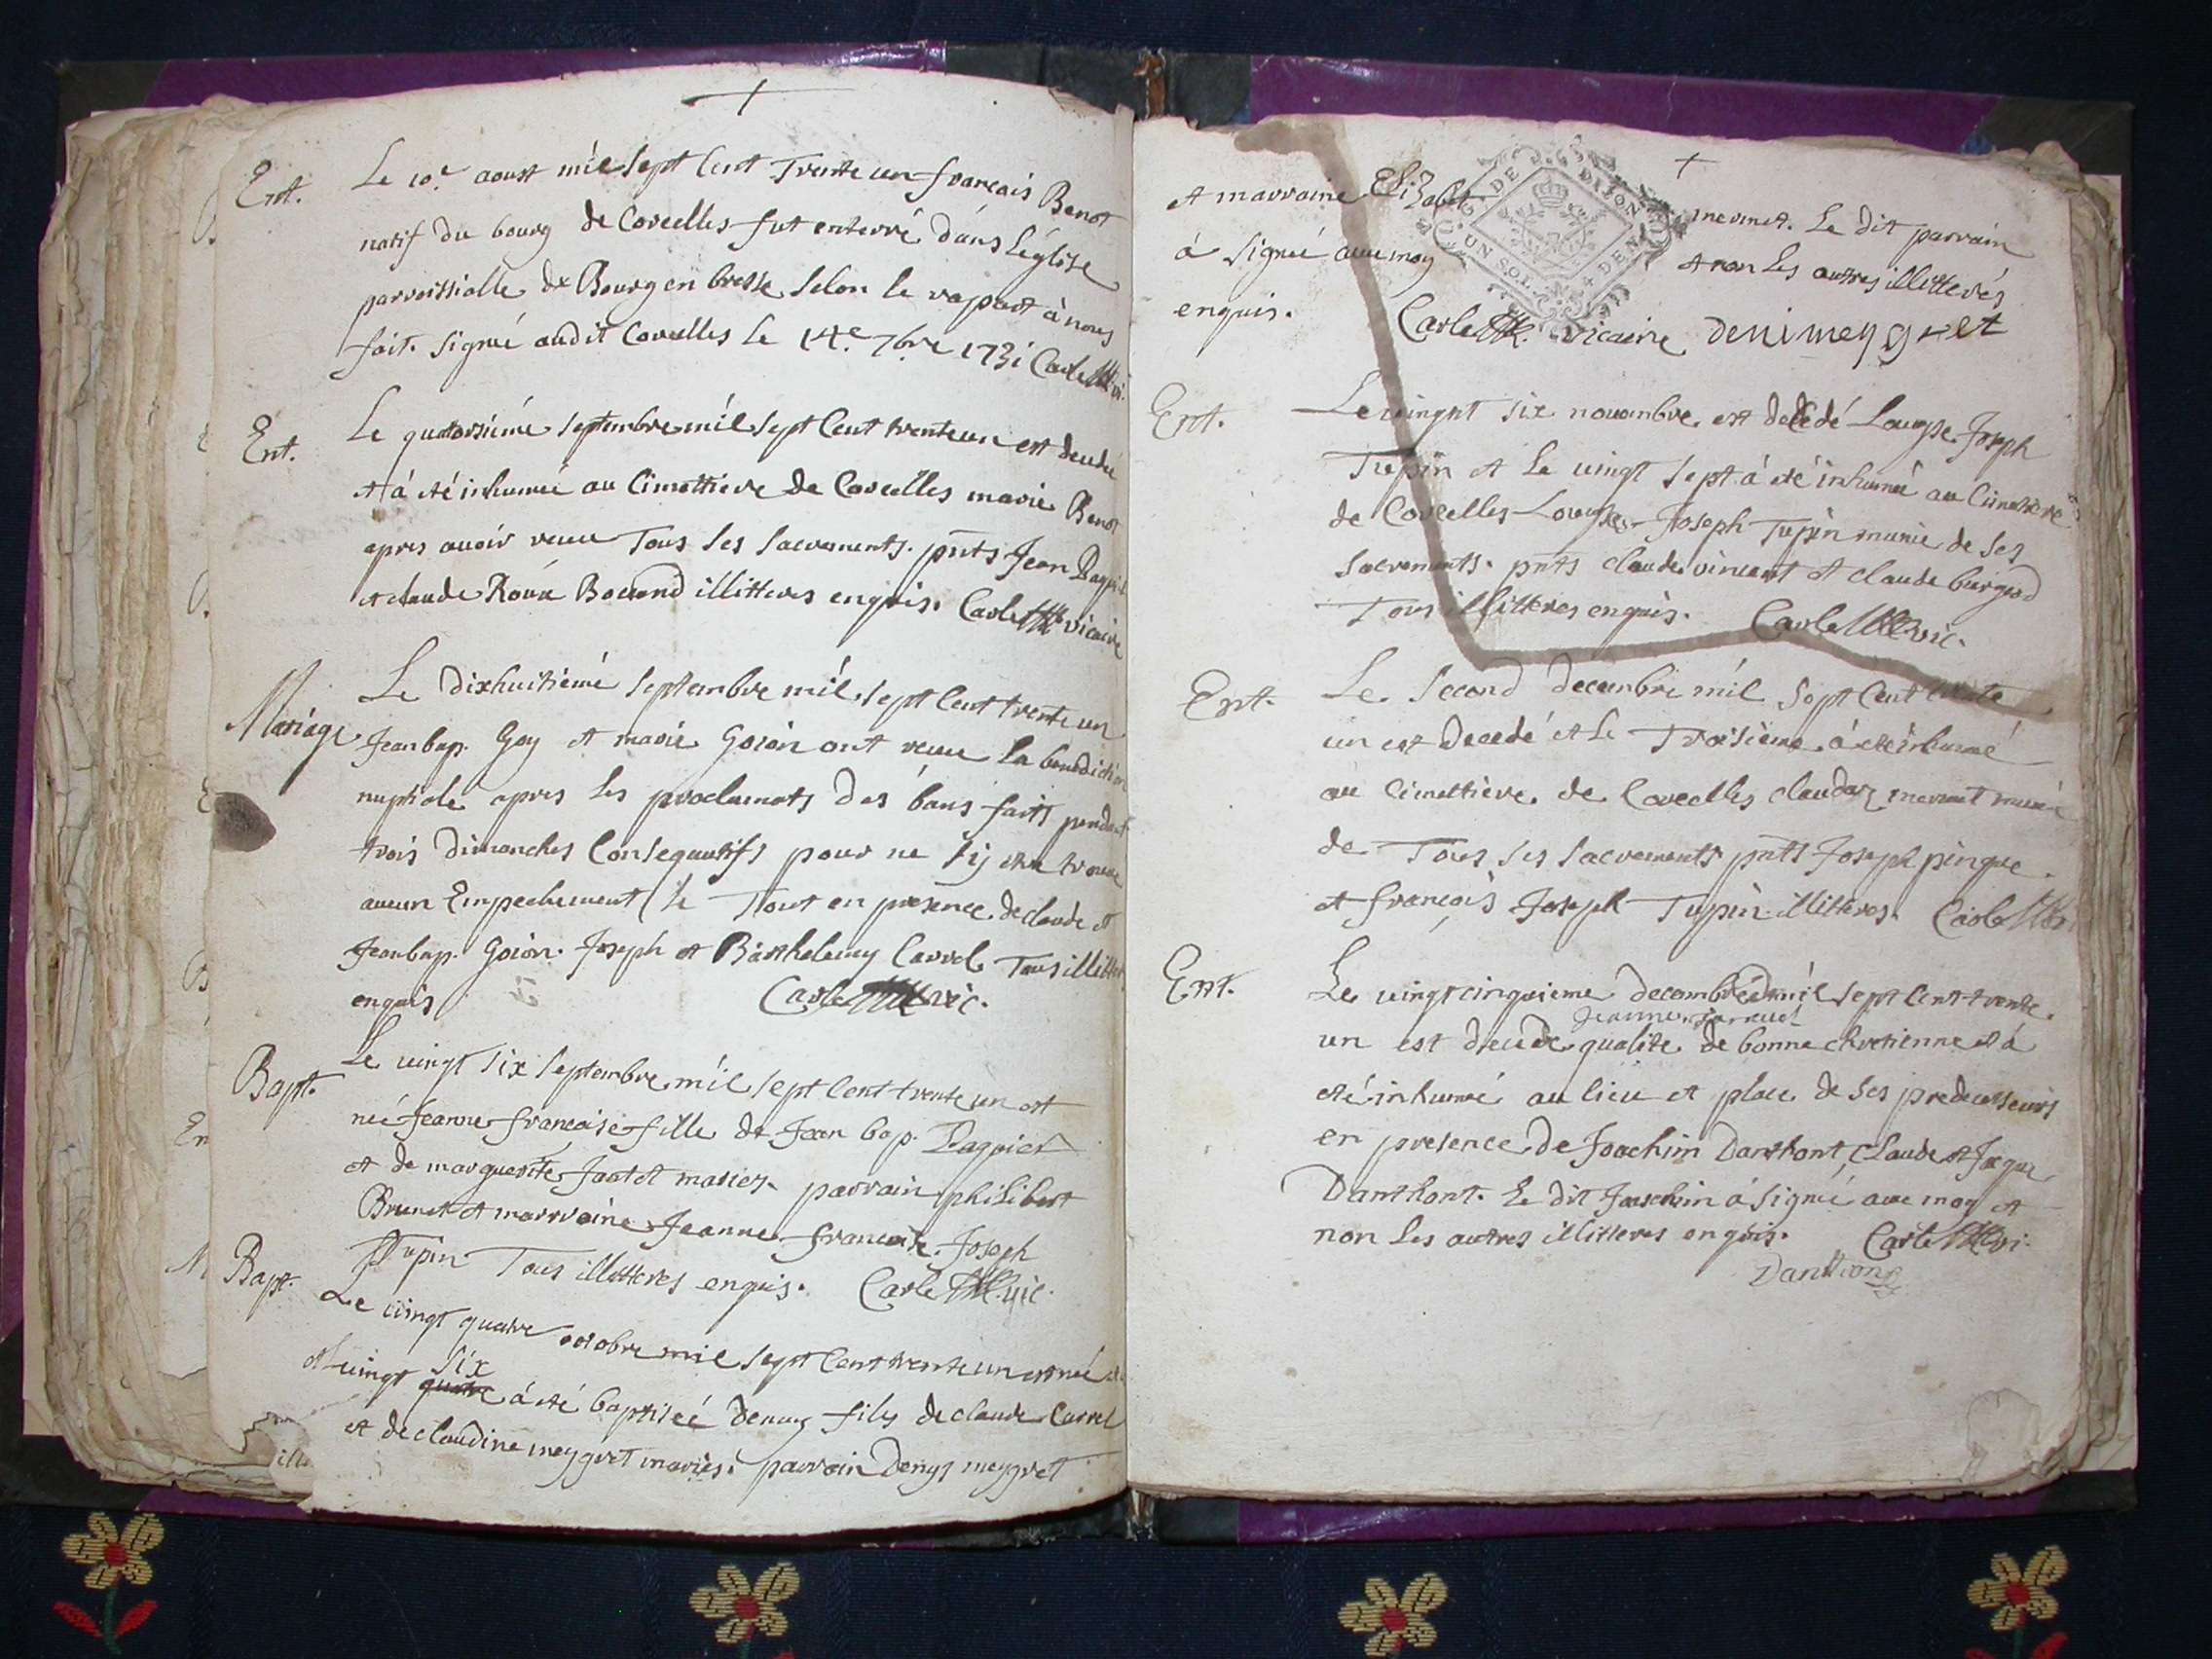 Ent. Le 10e aoust mil sept cent Trente un francais Benot
natif du bourg de Corcelles fut enterré dans L'église
parroissialle de Bourg en bresse selon le raport à nous
fait. signé audit Corcelles le 14e 7bre 1731 Carle
Ent. Le quatorsiéme septembre mil sept cent trente un est decedé
et à eté inhumée au Cimettiere de Corcelles marie Benot
apres avoir receu Tous ses sacrements. pnts Jean
et claude Roux illitteres enquis. Carle vicaire
Mariage Le dixhuitiémé septembre mil sept cent trente un
Jean bap. Goy et marie Goion ont receu la benediction
nuptiale apres les proclamats des bans faits pendant
trois dimanches Consequutifs pour ne s'ij etre trouvé
aucun Empechement le Tout en presence de claude et
Jean bap. Goion. Joseph et Barthelemy Carrel Tous illitteres
enquis Carle vic.
Bapt. Le vingt six septembre mil sept cent trente un est
née Jeanne francoise fille de Jean bap. Paquier
et de marguerite mariez. parrain philibert
Brunet et marrvaine Jeanne francoise Joseph
Tupin Tous illitteres enquis. Carle vic.
Bapt. Le vingt quatre octobre mil sept cent trente un est né et
le vingt six quatre à eté baptiséé denis fils de claude Carrel
et de claudine meygret mariés. parrain Denys meygret
DE DIJON
UN SOL 4 DEN
et marraine Elizabet mermet. Le dit parrain
à signé avec moy et non les autres illitterés
enquis. Carle vicaire deni meygret
Ent. Le vingt six novembre est decedé Louyse Joseph
Tupin et Le vingt sept à eté inhumé au Cimetiere
de Corcelles Louyse Joseph Tupin munie de ses
sacrements. pnts claude vincent et claude burgod
Tous illitteres enquis. Carle vic.
Ent. Le second decembre mil sept cent trente
un est decedé et Le Troisieme à eté inhumé
au Cimettiere de Corcelles mermet munie
de Tous ses sacrements pnts Joseph pingue
et françois Joseph Tupin illitteres. Carle
Ent. Le vingt cinquieme decembre mil sept cent trente
Jeanne
un est decedé qualite de bonne chretienne et à
eté inhumé au lieu et place de ses predecesseurs
en presence de Joachim Danthont, Claude et Jaque
Danthont. Le dit Joachin à signé avec moy et
non les autres illitteres enquis. Carle vi.